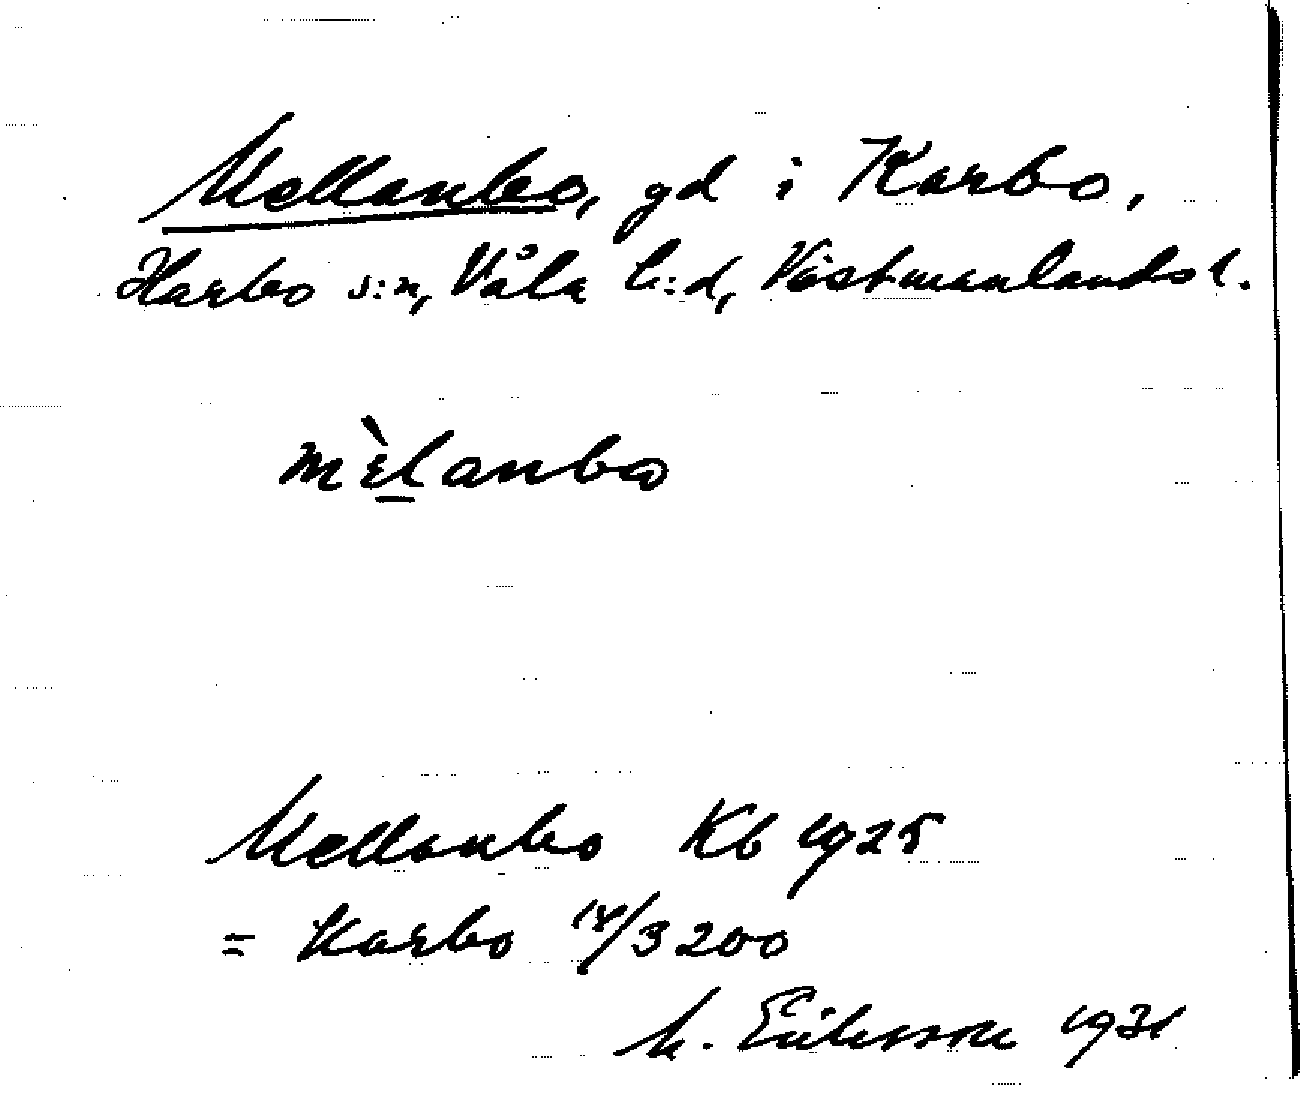 Mellanbo, gd i Karbo,
Harbo s:n, Våla h:d, Västmanlands l.
mèlanbω
Mellanbo Kb 1925
= Karbo 14/3200
M. Eriksson 1931